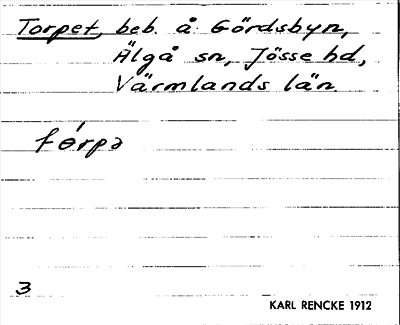 Torpet, beb. å Gördsbyn,
Älgå sn, Jösse hd,
Värmlands län
tórpə
3
KARL RENCKE 1912